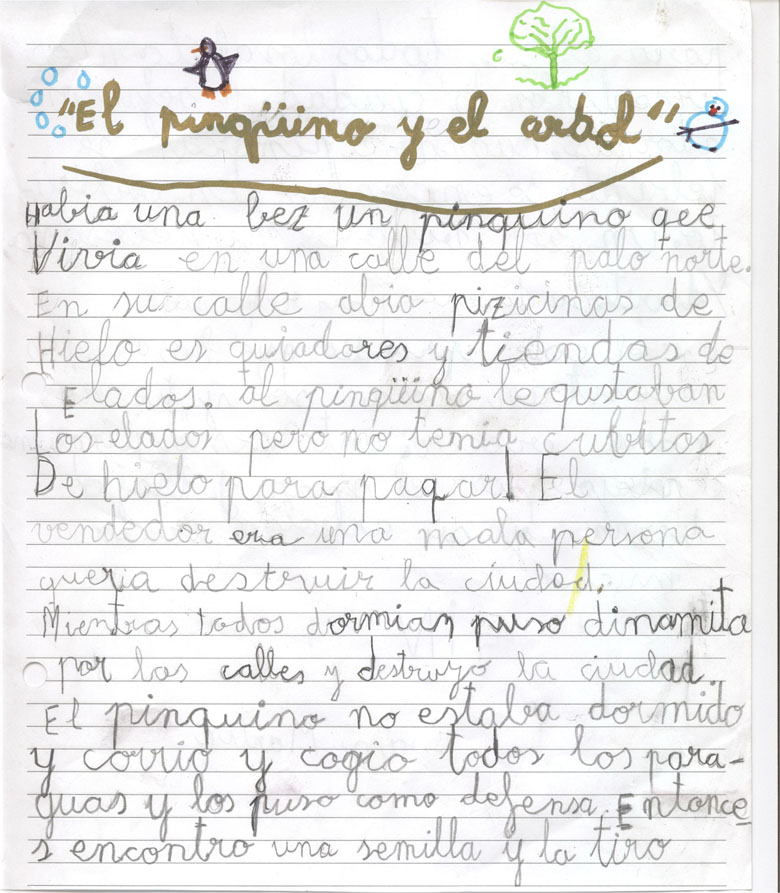 "El pingüino y el arbol"
Habia una bez un pinguino qee
Vivia en una calle del palo norte.
En su calle abia pizicinas de
Hielo es quiadores y tiendas de
Elados. al pingüino le gustaban
Los elados pero no temia cubitos
De hielo para pagar! El
vendedor era una mala persona
queria destruir la ciudad.
Mientras todos dormian puso dinamita
por las calles y destruyo la ciudad..
El pinguino no estaba dormido
y corrio y cogio todos los para-
guas y los puso como defensa. Entonce
s encontro una semilla y la tiro